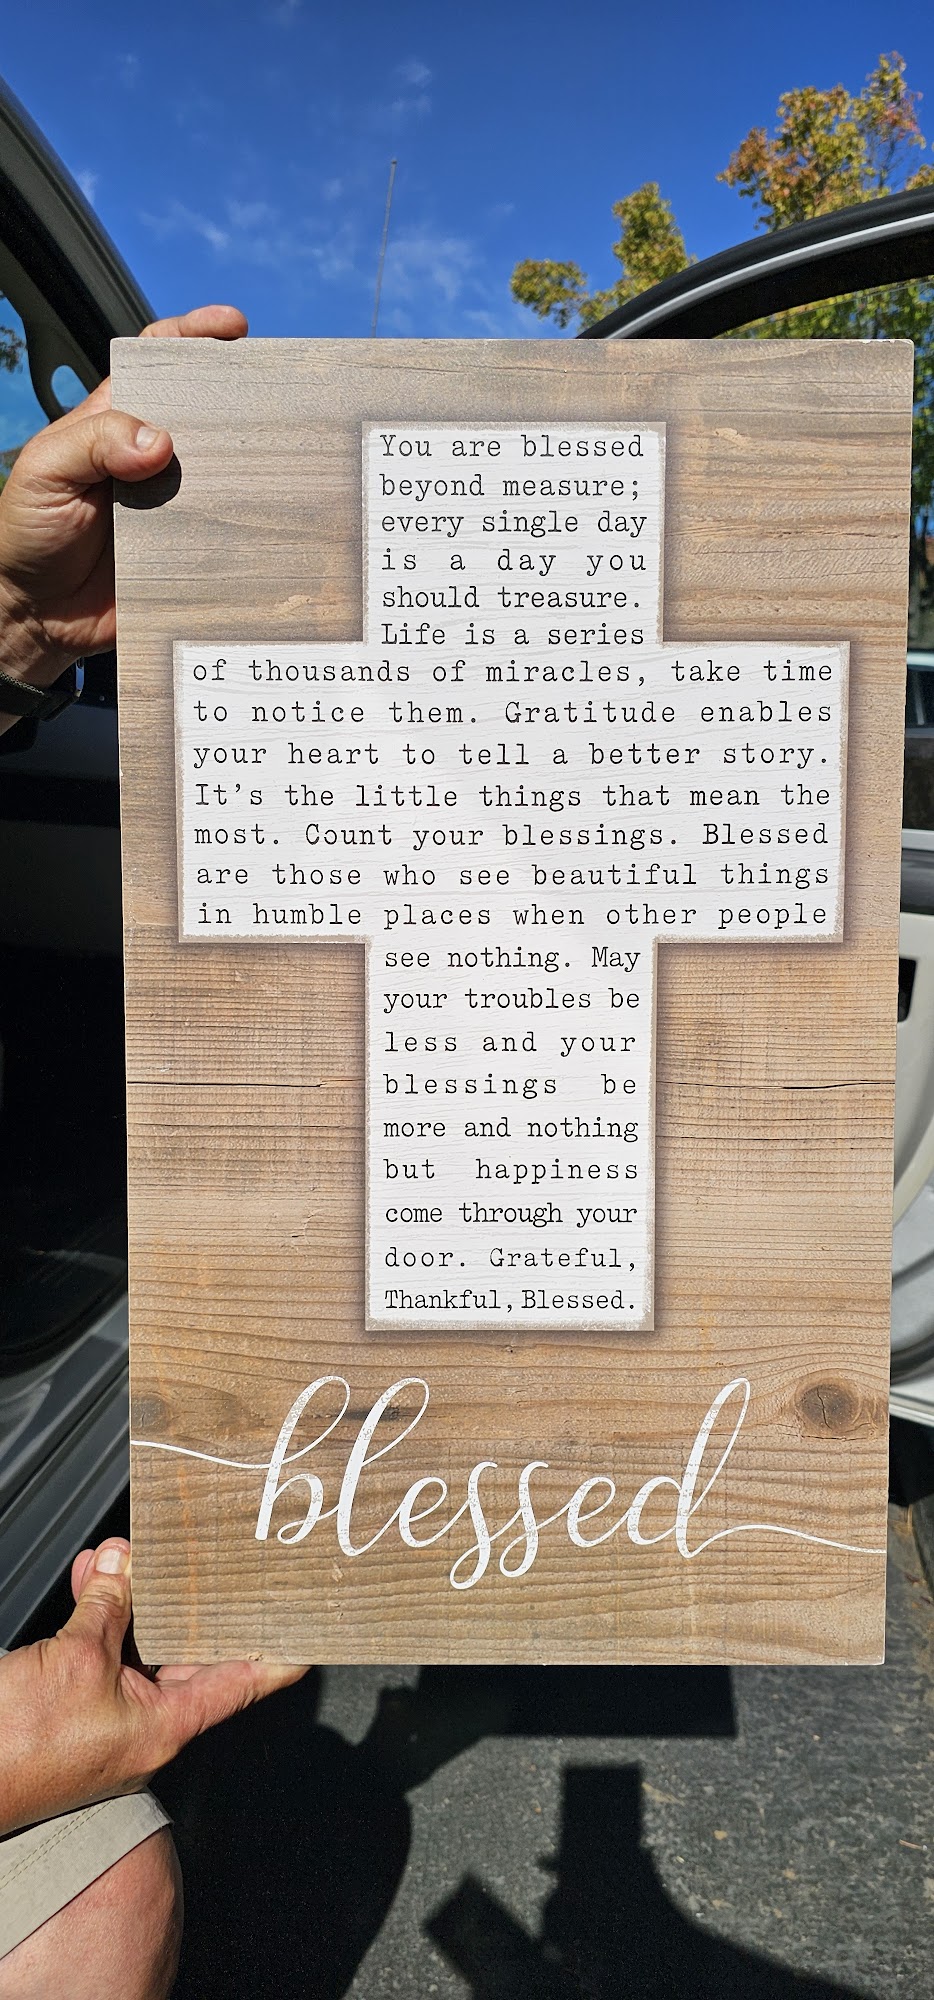 You are blessed
beyond measure;
every single day
is a day you
should treasure.
Life is a series
of thousands of miracles, take time
to notice them. Gratitude enables
your heart to tell a better story.
It's the little things that mean the
most. Count your blessings. Blessed
are those who see beautiful things
in humble places when other people
see nothing. May
your troubles be
less and your
blessings be
more and nothing
but happiness
come through your
door. Grateful,
Thankful, Blessed.
blessed